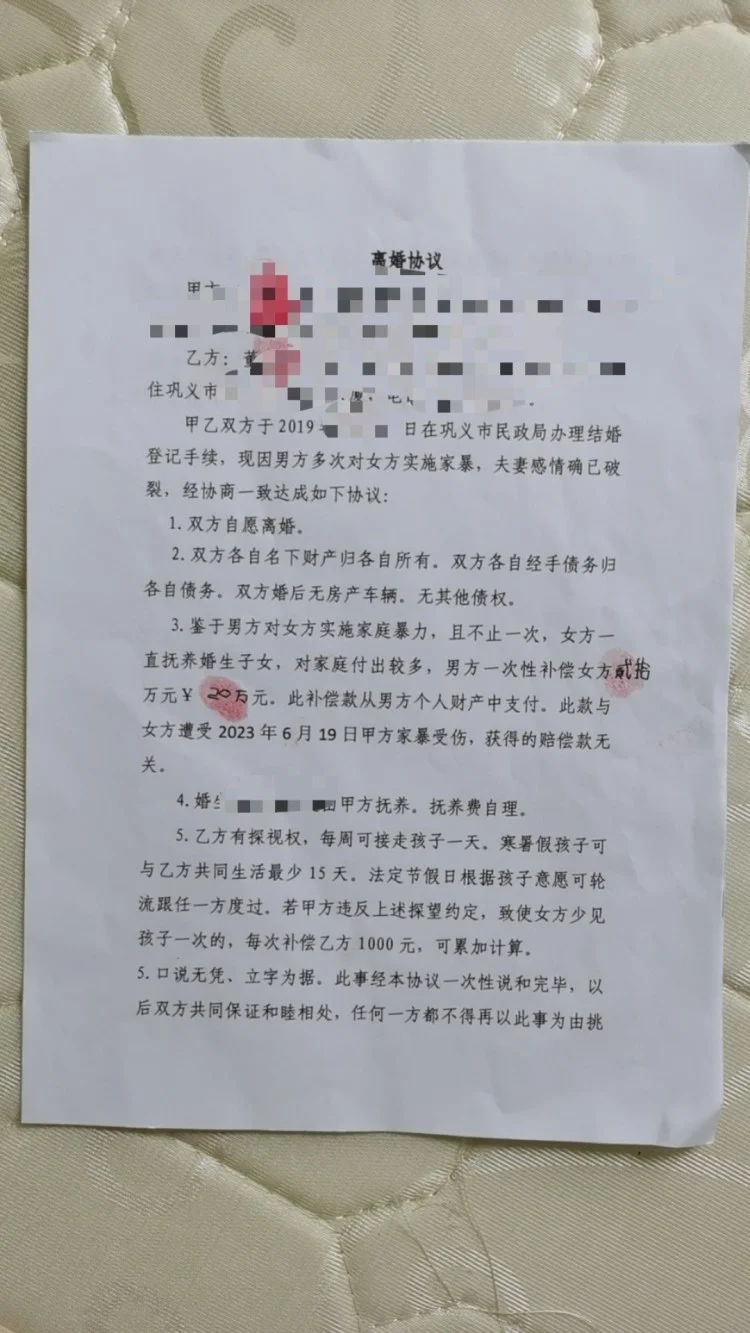 离婚协议
甲方
乙方：董
住巩义市
甲乙双方于2019 日在巩义市民政局办理结婚
登记手续，现因男方多次对女方实施家暴，夫妻感情确已破
裂，经协商一致达成如下协议：
1.双方自愿离婚。
2.双方各自名下财产归各自所有。双方各自经手债务归
各自债务。双方婚后无房产车辆。无其他债权。
3.鉴于男方对女方实施家庭暴力，且不止一次，女方一
直抚养婚生子女，对家庭付出较多，男方一次性补偿女方贰拾
万元￥20万元。此补偿款从男方个人财产中支付。此款与
女方遭受2023年6月19日甲方家暴受伤，获得的赔偿款无
关。
4.婚 由甲方抚养。抚养费自理。
5.乙方有探视权，每周可接走孩子一天。寒暑假孩子可
与乙方共同生活最少15天。法定节假日根据孩子意愿可轮
流跟任一方度过。若甲方违反上述探望约定，致使女方少见
孩子一次的，每次补偿乙方1000元，可累加计算。
5.口说无凭、立字为据。此事经本协议一次性说和完毕，以
后双方共同保证和睦相处，任何一方都不得再以此事为由挑